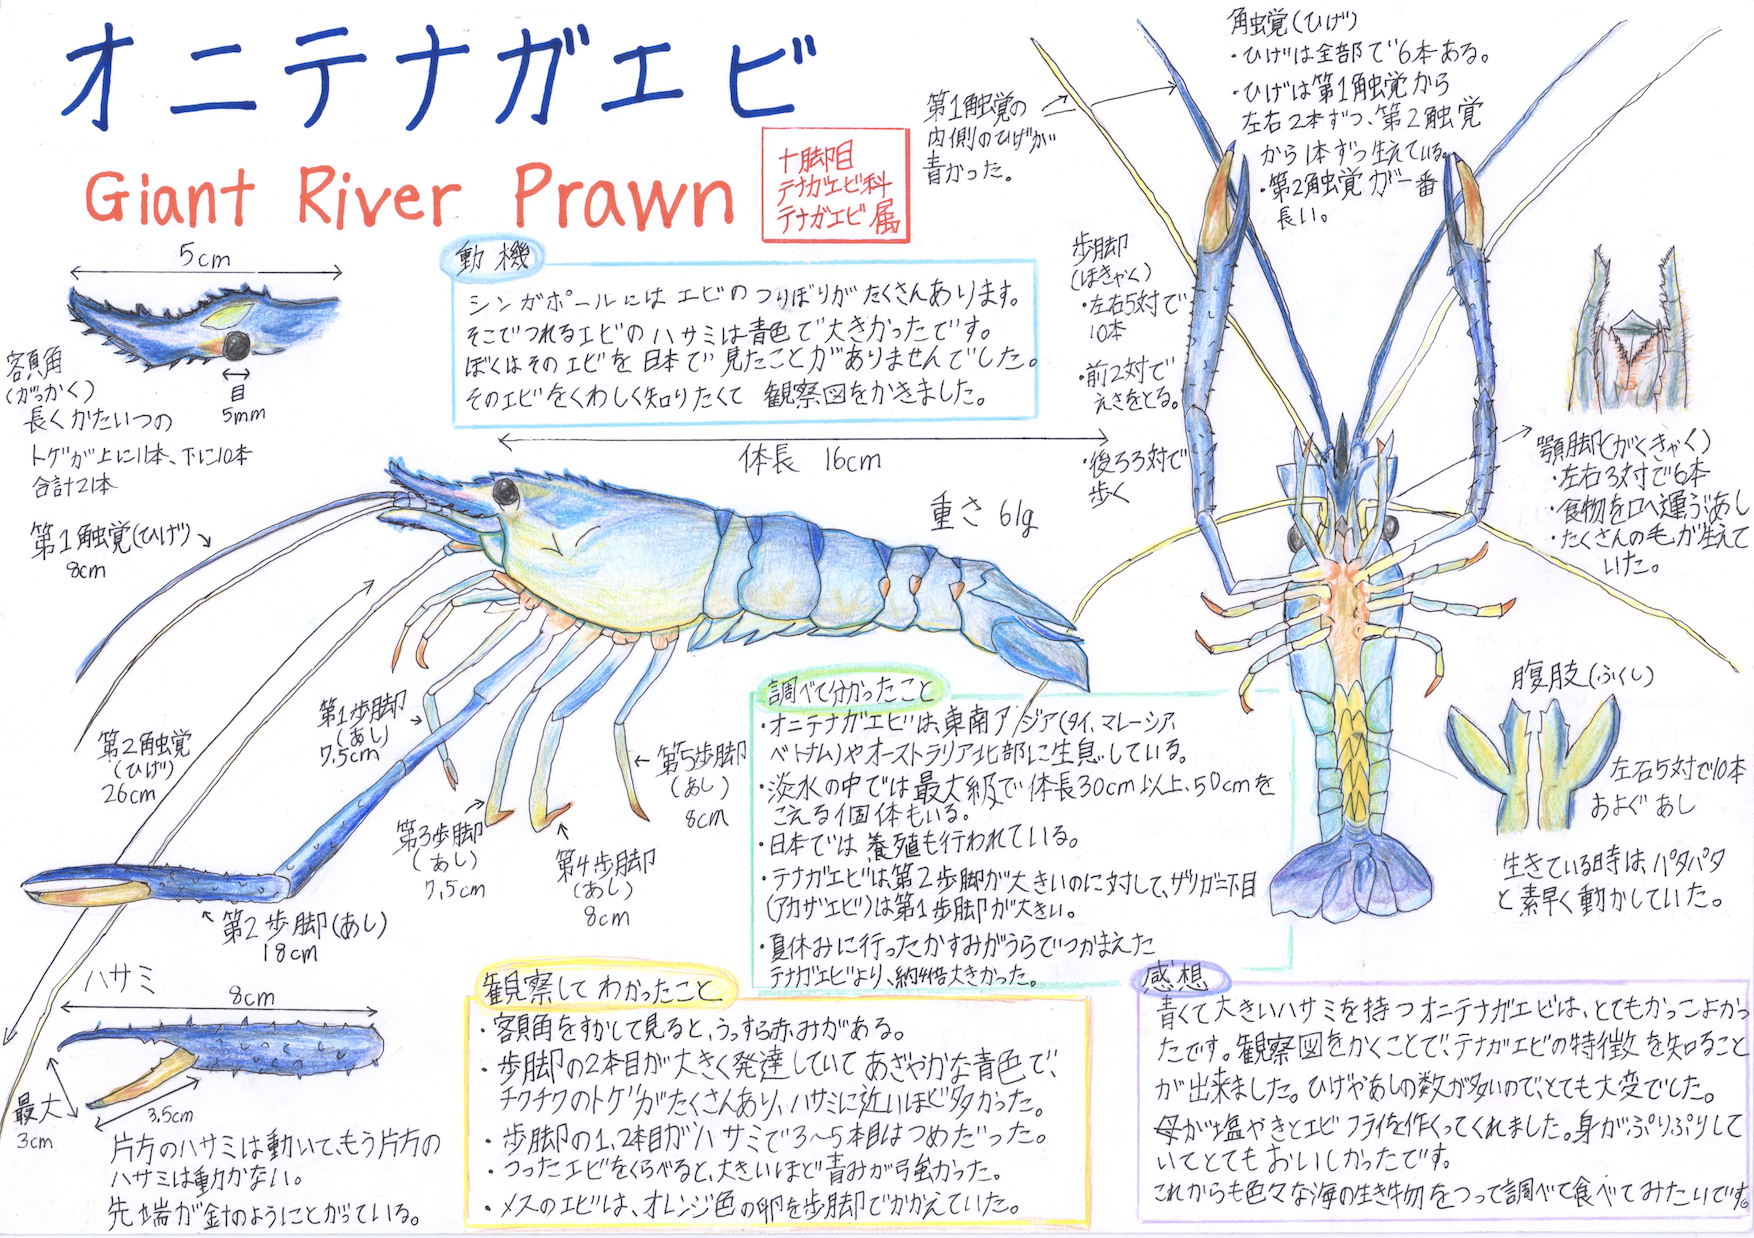 オニテナガエビ
Giant River Prawn
十脚目
テナガエビ科
テナガエビ属
5cm
額角
(がっかく)
目
5mm
長くかたいつの
トゲが上に11本、下に10本
合計21本
動機
シンガポールにはエビのつりぼりがたくさんあります。
そこでつれるエビのハサミは青色で大きかったです。
ぼくはそのエビを日本で見たことがありませんでした。
そのエビをくわしく知りたくて 観察図をかきました。
体長 16cm
重さ 61g
第1触覚(ひげ)
8cm
第2触覚
(ひげ)
26cm
第1歩脚
(あし)
7.5cm
第2歩脚(あし)
18cm
第3歩脚
(あし)
7.5cm
第4歩脚
(あし)
8cm
第5歩脚
(あし)
8cm
ハサミ
8cm
最大
3cm
3.5cm
片方のハサミは動いて、もう片方の
ハサミは動かない。
先端が針のようにとがっている。
第1触覚の
内側のひげが
青かった。
触覚(ひげ)
・ひげは全部で6本ある。
・ひげは第1触覚から
左右2本ずつ、第2触覚
から1本ずつ生えている。
・第2触覚が一番
長い。
歩脚
(ほきゃく)
・左右5対で
10本
・前2対で
えさをとる。
・後ろ3対で
歩く
顎脚(がくきゃく)
・左右3対で6本
・食物を口へ運ぶあし
・たくさんの毛が生えて
いた。
腹肢(ふくし)
左右5対で10本
およぐあし
生きている時は、パタパタ
と素早く動かしていた。
調べて分かったこと
・オニテナガエビは、東南アジア(タイ、マレーシア、
ベトナム)やオーストラリア北部に生息している。
・淡水の中では最大級で体長30cm以上、50cmを
こえる個体もいる。
・日本では養殖も行われている。
・テナガエビは第2歩脚が大きいのに対して、ザリガニ下目
(アカザエビ)は第1歩脚が大きい。
・夏休みに行ったかすみがうらでつかまえた
テナガエビより、約4倍大きかった。
観察してわかったこと
・額角をすかして見ると、うっすら赤みがある。
・歩脚の2本目が大きく発達していてあざやかな青色で、
チクチクのトゲがたくさんあり、ハサミに近いほど多かった。
・歩脚の1、2本目がハサミで3〜5本目はつめだった。
・つったエビをくらべると、大きいほど青みが強かった。
・メスのエビは、オレンジ色の卵を歩脚でかかえていた。
感想
青くて大きいハサミを持つオニテナガエビは、とてもかっこよかっ
たです。観察図をかくことで、テナガエビの特徴を知ること
が出来ました。ひげやあしの数が多いので、とても大変でした。
母が塩やきとエビフライを作ってくれました。身がぷりぷりして
いてとてもおいしかったです。
これからも色々な海の生き物をつって調べて食べてみたいです。